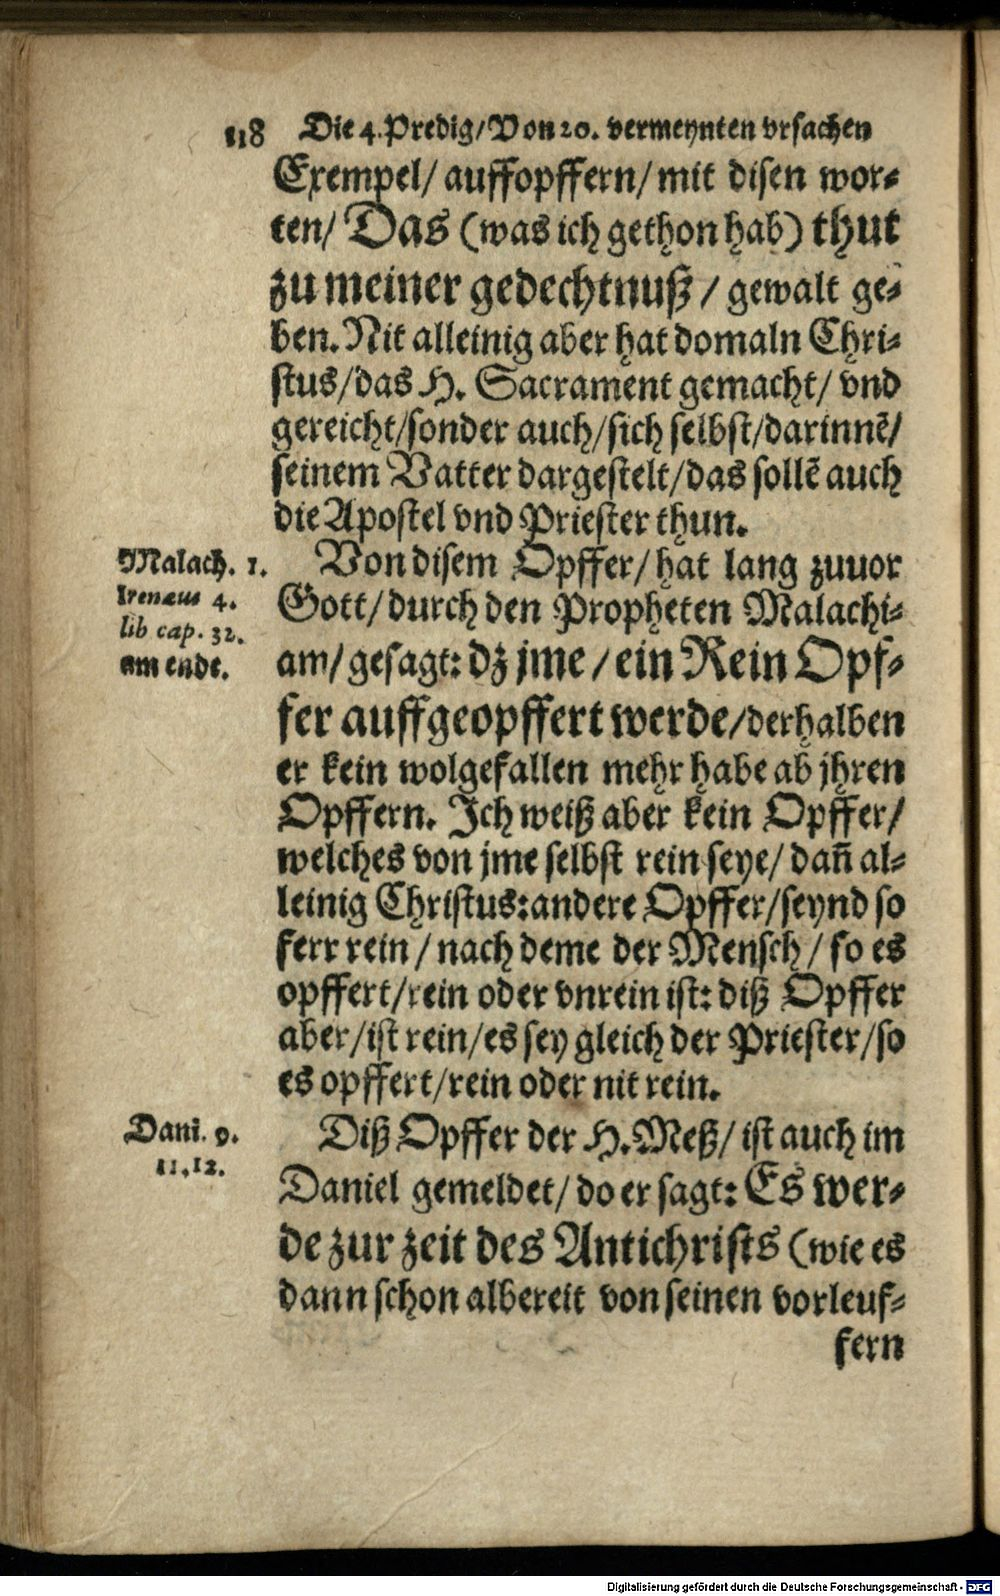 118 Die 4. Predig/ Von 20. vermeynten vrsachen
Exempel/ auffopffern/ mit disen wor-
ten/ Das (was ich gethon hab) thut
zu meiner gedechtnuß/ gewalt ge-
ben. Nit alleinig aber hat domaln Chri-
stus/ das H. Sacrament gemacht/ vnd
gereicht/ sonder auch/ sich selbst/ darinnẽ/
seinem Vatter dargestelt/ das sollẽ auch
die Apostel vnd Priester thun.
Malach. 1.
Irenæus 4.
lib cap. 32.
am ende.
Von disem Opffer/ hat lang zuuor
Gott/ durch den Propheten Malachi-
am/ gesagt: dz jme/ ein Rein Opf-
fer auffgeopffert werde/ derhalben
er kein wolgefallen mehr habe ab jhren
Opffern. Ich weiß aber kein Opffer/
welches von jme selbst rein seye/ dañ al-
leinig Christus: andere Opffer/ seynd so
ferr rein/ nach deme der Mensch/ so es
opffert/ rein oder vnrein ist: diß Opffer
aber/ ist rein/ es sey gleich der Priester/ so
es opffert/ rein oder nit rein.
Dani. 9.
11, 12.
Diß Opffer der H. Meß/ ist auch im
Daniel gemeldet/ do er sagt: Es wer-
de zur zeit des Antichrists (wie es
dann schon albereit von seinen vorleuf-
fern
Digitalisierung gefördert durch die Deutsche Forschungsgemeinschaft - DFG